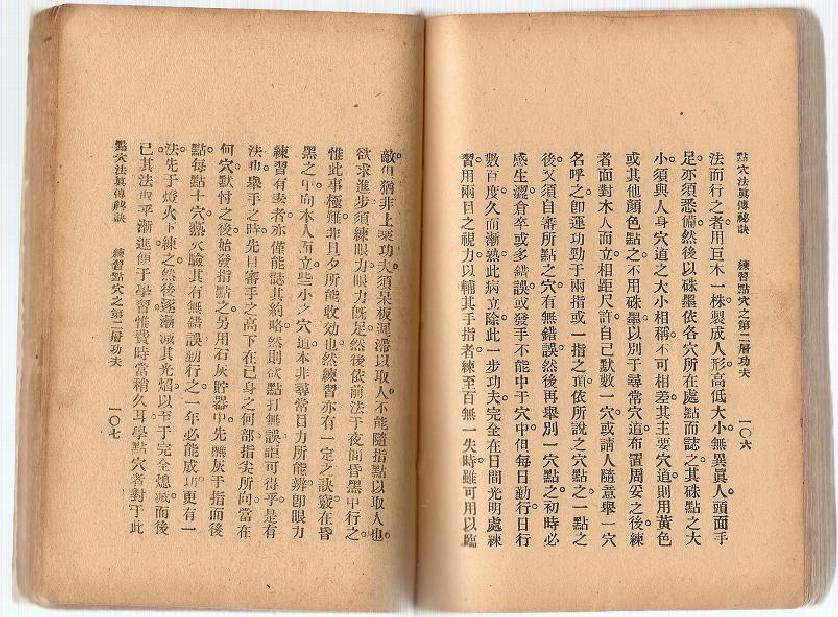 點穴法眞傳秘訣　練習點穴之第二層功夫　一〇六
法而行之者。用巨木一株。製成人形。高低大小。無異眞人。頭面手
足。亦須悉備。然後以硃墨依各穴所在處點而誌之。其硃點之大
小。須與人身穴道之大小相稱。不可相差。其主要穴道。則用黃色
或其他顏色點之。不用硃墨。以別于尋常穴道。布置周妥之後。練
者面對木人而立。相距尺許。自己默數一穴。或請人隨意舉一穴
名呼之。卽運功勁于兩指或一指之頂。依所說之穴點之。一點之
後。又須自審所點之穴。有無錯誤。然後再舉別一穴點之。初時必
感生澀。倉卒或多錯誤。或發手不能中于穴中。但每日勤行。日行
數百度。久而漸熟。此病立除。此一步功夫。完全在日間光明處練
習。用兩目之視力。以輔其手指者。練至百無一失時。雖可用以臨
敵。但猶非上乘功夫。須呆板濡滯以取人。不能隨指點以取人也。
欲求進步。須練眼力。眼力旣足。然後依前法于夜間昏黑中行之。
惟此事極難。非旦夕所能收効也。然練習亦有一定之訣竅。在昏
黑之中。向木人而立。些小之穴道。本非尋常目力所能辨。卽眼力
練習有素者。亦僅能誌其約略。然則欲點打無誤。詎可得乎。是有
法也。舉手之時。先自審手之高下。在己身之何部。指尖所向。當在
何穴。默付之後。始發指點之。另用石灰貯器中。先蘸灰于指。而後
點。每點十穴。爇火驗其有無錯誤。勤行之一年。必能成功。更有一
法。先于燈火下練之。然後逐漸減其光熖。以至于完全熄滅而後
已。其法也平漸進。便于學習。惟費時當稍久耳。學點穴者。對于此
點穴法眞傳秘訣　練習點穴之第二層功夫　一〇七